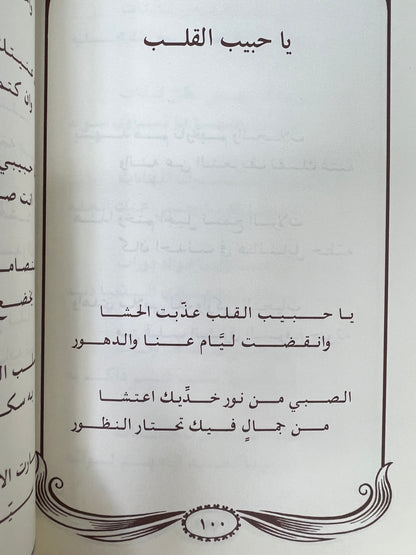 يا حبيب القلب
يا حبيب القلب عذّبت الحشا
وانقضت ليَّام عنا والدهور
الصبي من نور خدِّيك اعتشا
من جمالٍ فيك تحتار النظور
١٠٠